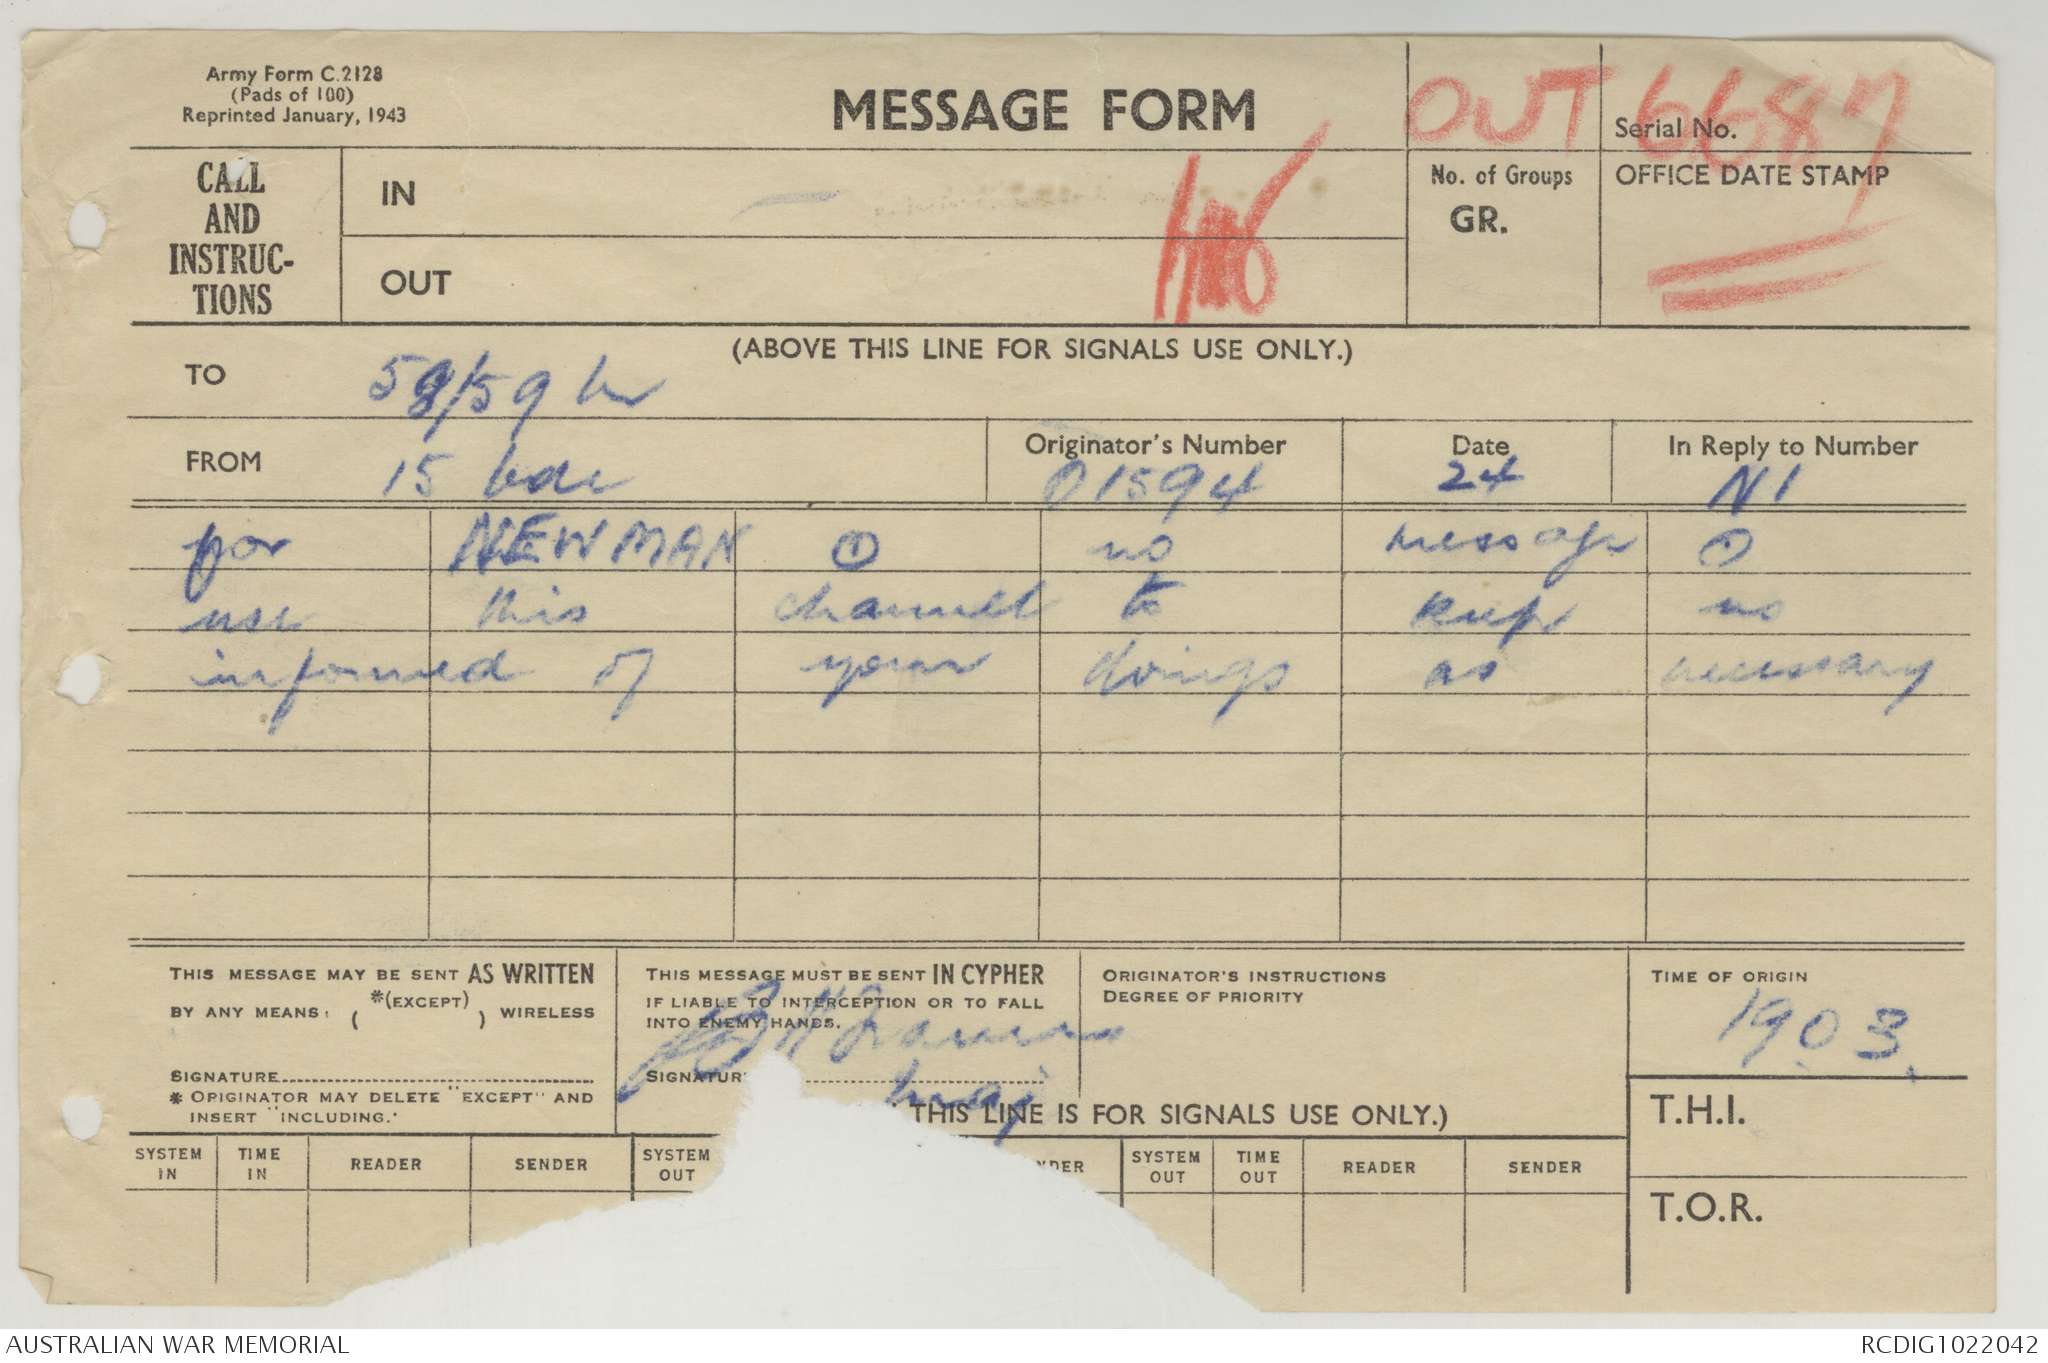 Army Form C.2128
(Pads of 100)
Reprinted January, 1943
MESSAGE FORM
OUT 6687
Serial No.
CALL AND INSTRUC-TIONS
IN
OUT
No. of Groups
GR.
OFFICE DATE STAMP
(ABOVE THIS LINE FOR SIGNALS USE ONLY.)
TO 58/59 bn
FROM 15 bde
Originator's Number O1594
Date 24
In Reply to Number N1
for NEWMAN (1) no message (1)
use this channel to keep us
informed of your doings as necessary
THIS MESSAGE MAY BE SENT AS WRITTEN
BY ANY MEANS: *(EXCEPT) ( ) WIRELESS
SIGNATURE
* ORIGINATOR MAY DELETE "EXCEPT" AND
INSERT "INCLUDING."
THIS MESSAGE MUST BE SENT IN CYPHER
IF LIABLE TO INTERCEPTION OR TO FALL
INTO ENEMY HANDS.
SIGNATUR
maj
ORIGINATOR'S INSTRUCTIONS
DEGREE OF PRIORITY
TIME OF ORIGIN
1903
THIS LINE IS FOR SIGNALS USE ONLY.)
T.H.I.
SYSTEM IN TIME IN READER SENDER SYSTEM OUT NDER SYSTEM OUT TIME OUT READER SENDER
T.O.R.
AUSTRALIAN WAR MEMORIAL RCDIG1022042